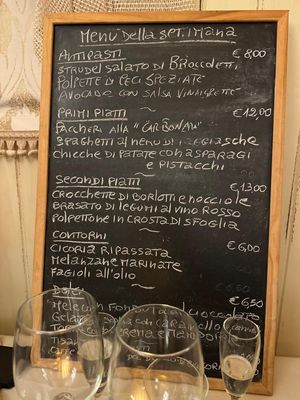 Menù della settimana
Antipasti € 8,00
Strudel salato di Broccoletti
Polpette di ceci speziate
Avocado con salsa vinaigrette
Primi Piatti € 12,00
Paccheri alla "CarBonara"
Spaghetti al nero di
Chicche di patate con asparagi
e pistacchi
Secondi Piatti € 13,00
Crocchette di borlotti e nocciole
Brasato di legumi al vino rosso
Polpettone in crosta di sfoglia
Contorni € 6,00
Cicoria ripassata
Melanzane marinate
Fagioli all'olio
€ 6,50
Mele con fonduta al cioccolato